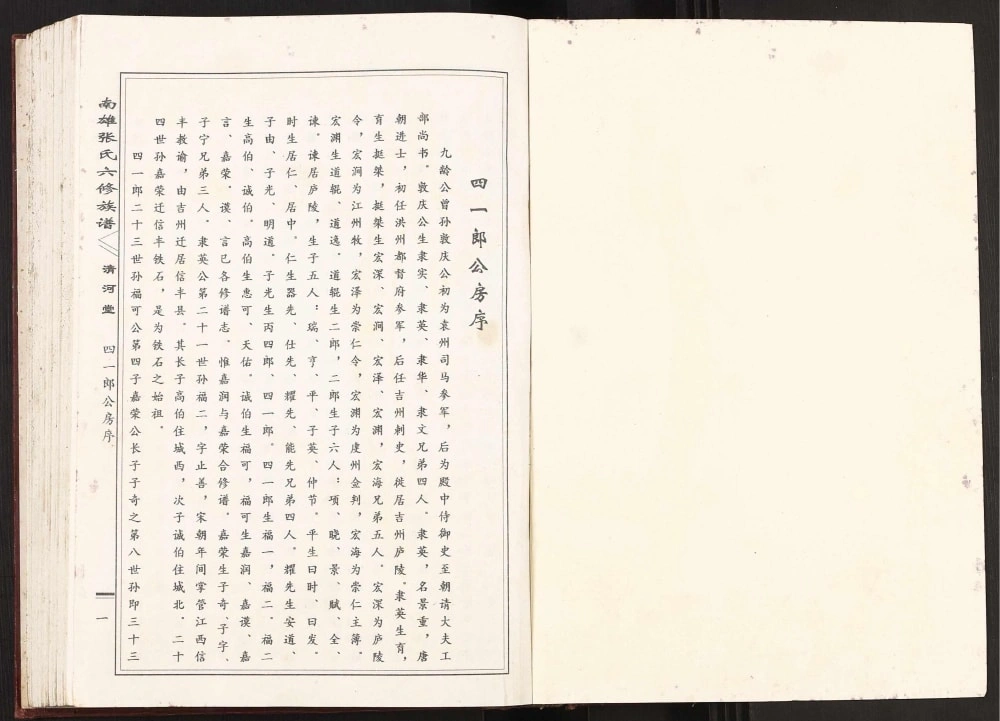 四一郎公房序
九龄公曾孙敦庆公初为袁州司马参军，后为殿中侍御史至朝请大夫工
部尚书。敦庆公生隶实、隶英、隶华、隶文兄弟四人。隶英，名景重，唐
朝进士，初任洪州都督府参军，后任吉州刺史，徙居吉州庐陵。隶英生育，
育生挺桀，挺桀生宏深、宏涧、宏泽、宏渊，宏海兄弟五人。宏深为庐陵
令，宏涧为江州牧，宏泽为崇仁令，宏渊为虔州佥判，宏海为崇仁主簿。
宏渊生道辊、道逸。道辊生二郎，二郎生子六人：项、晓、景、赋、全、
谏。谏居庐陵，生子五人：瑞、亨、平、子英、仲节。平生曰时、曰发。
时生居仁、居中。仁生器先、仕先、耀先、能先兄弟四人。耀先生安道、
子由、子光、明道。子光生丙四郎、四一郎。四一郎生福一，福二。福二
生高伯、诚伯。高伯生惠可、天佑。诚伯生福可，福可生嘉润、嘉谟、嘉
言、嘉荣。谟、言已各修谱志、惟嘉润与嘉荣合修谱。嘉荣生子奇、子字、
子宁兄弟三人。隶英公第二十一世孙福二，字止善，宋朝年间掌管江西信
丰教谕，由吉州迁居信丰县。其长子高伯住城西，次子诚伯住城北。二十
四世孙嘉荣迁信丰铁石，是为铁石之始祖。
四一郎二十三世孙福可公第四子嘉荣公长子子奇之第八世孙即三十三
南雄张氏六修族谱 清河堂 四一郎公房序 一